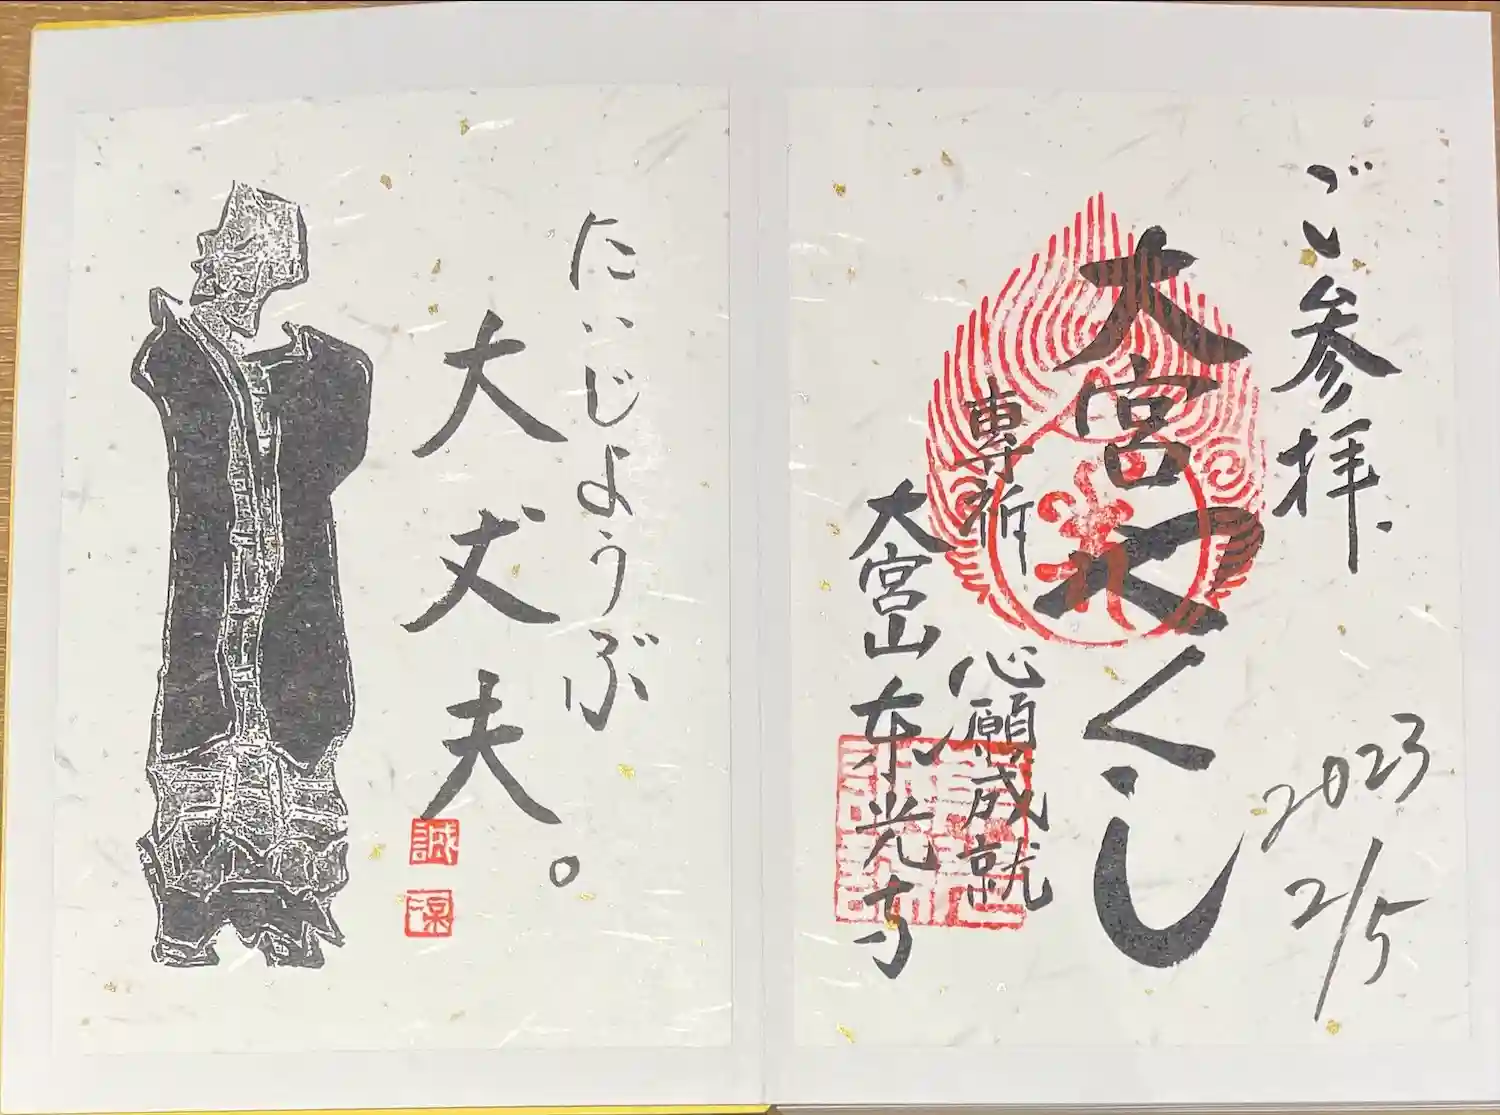 ご参拝.
2023
2/5
大宮やくし
專祈 心願成就
大宮山 東光寺
たいじようぶ
大丈夫。
誠